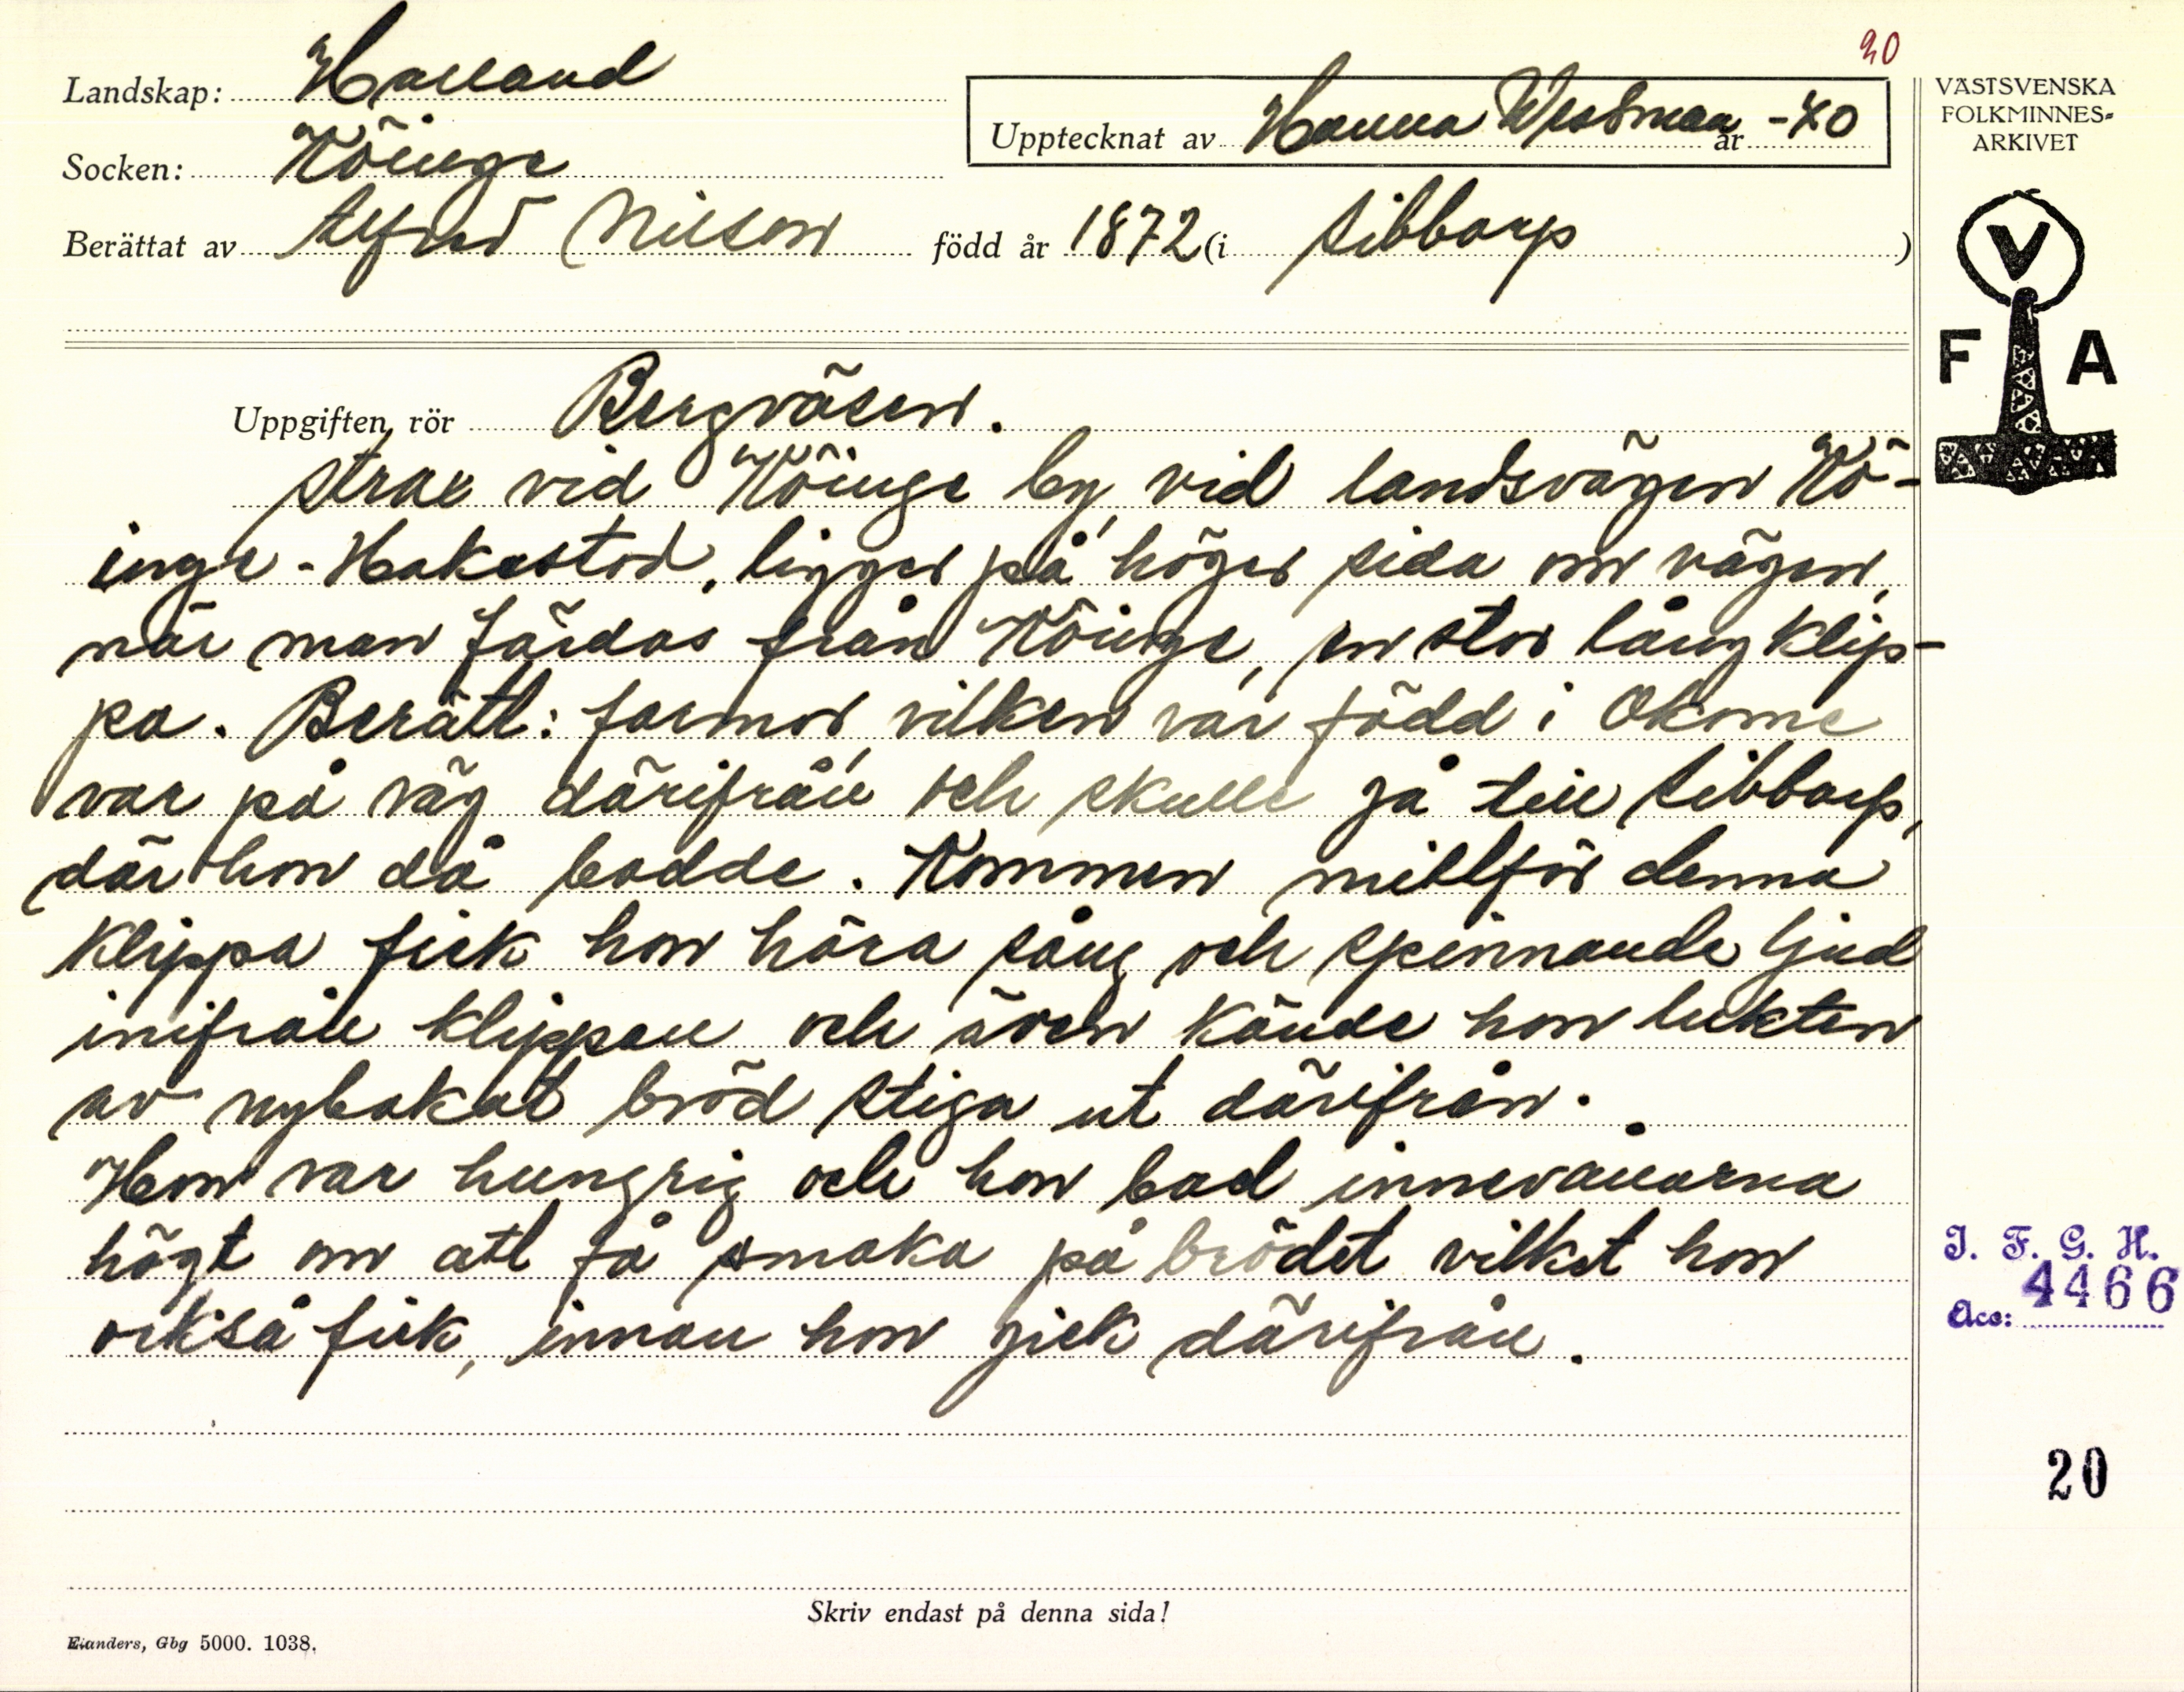 20
Landskap: Halland
Upptecknat av Hanna Westman år -40
Socken: Köinge
Berättat av Alfred Nilson född år 1872 (i Sibbarp)
VÄSTSVENSKA
FOLKMINNES-
ARKIVET
V
F A
Uppgiften rör Bergväsen.
Strax vid Köinge by, vid landsvägen Kö-
inge - Hakestod, ligger på höger sida om vägen,
när man färdas från Köinge, en stor lång klip-
pa. Berätt: farmor, vilken var född i Okome
var på väg därifrån och skulle gå till Sibbarp,
där hon då bodde. Kommen mittför denna
klippa fick hon höra sång och spinnande ljud
inifrån klippan och även kände hon lukten
av nybakat bröd stiga ut därifrån.
Hon var hungrig och hon bad innevånarna
högt om att få smaka på brödet vilket hon
också fick, innan hon gick därifrån.
I. F. G. H.
Acc: 4466
20
Skriv endast på denna sida!
Elanders, Gbg 5000. 1038.